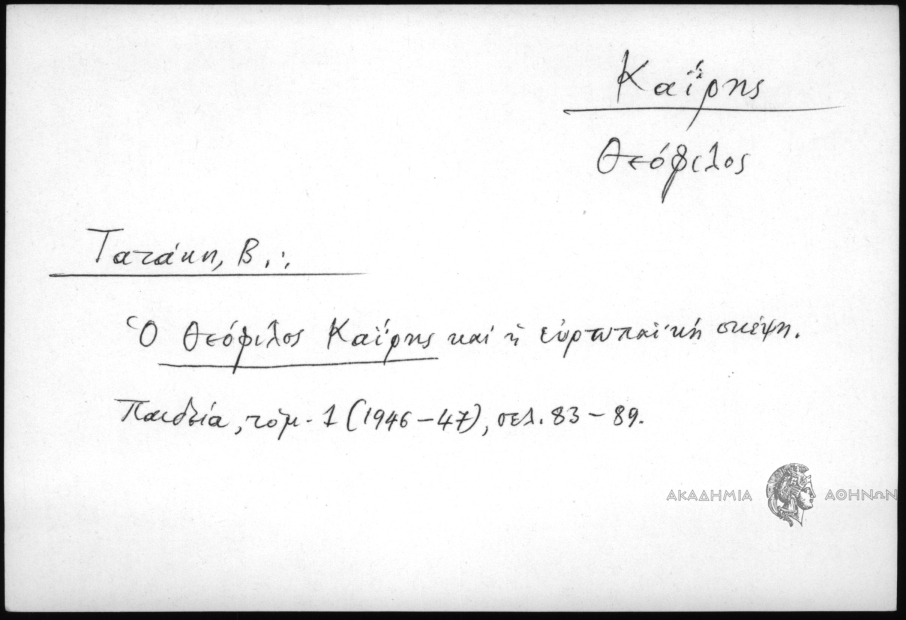 Καΐρης
Θεόφιλος
Τατάκη, Β.:
Ὁ Θεόφιλος Καΐρης καὶ ἡ εὐρωπαϊκή σκέψη.
Παιδεία, τόμ. 1 (1946-47), σελ. 83-89.
ΑΚΑΔΗΜΙΑ ΑΘΗΝΩΝ